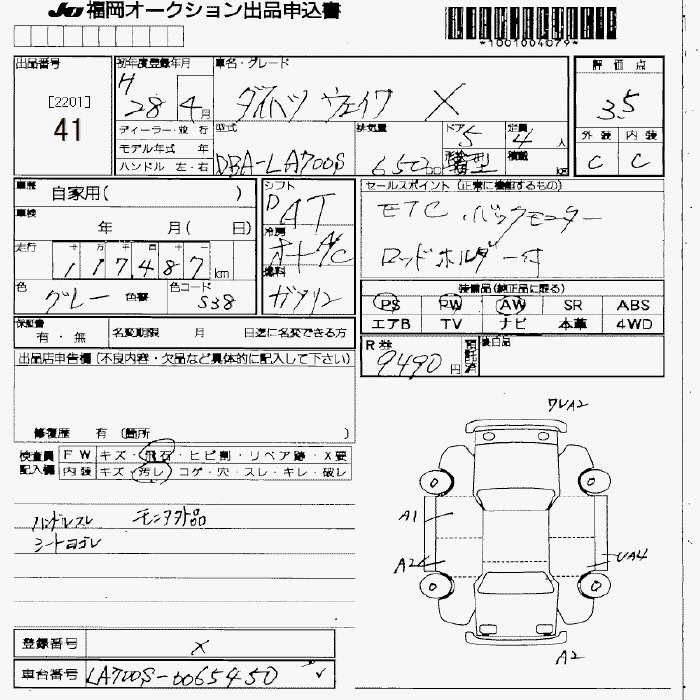 JU 福岡オークション出品申込書
*1001004079*
出品番号 初年度登録年月 車名・グレード 評価点
[2201]
41
H28 4月 ダイハツ ウェイク X 3.5
ディーラー・並行 型式 排気量 ドア 定員 外装 内装
モデル年式 年 5 4人 C C
ハンドル 左・右 DBA-LA700S 650cc 積載
車歴 自家用( ) シフト セールスポイント(正常に機能するもの)
車検 年 月( 日) DAT ETC.バックモニター
冷房 オートA/C ロッドホルダー付
走行 十 万 千 百 十 一
117487km 燃料 ガソリン
色 グレー 色替 色コード S38 装備品(純正品に限る)
PS PW AW SR ABS
エアB TV ナビ 本革 4WD
保証書 有・無 名変期限 月 日迄に名変できる方
R券 9490円 預託済 後日品
出品店申告欄(不良内容・欠品など具体的に記入して下さい)
修復歴 有 (箇所 )
検査員 FW キズ・飛石・ヒビ割・リペア跡・X要
記入欄 内装 キズ・汚レ・コゲ・穴・スレ・キレ・破レ
ハンドルスレ モニタ外品
シートヨゴレ
ワレA2
A1
A2
UA4
A2
登録番号 X
車台番号 LA700S-0065450